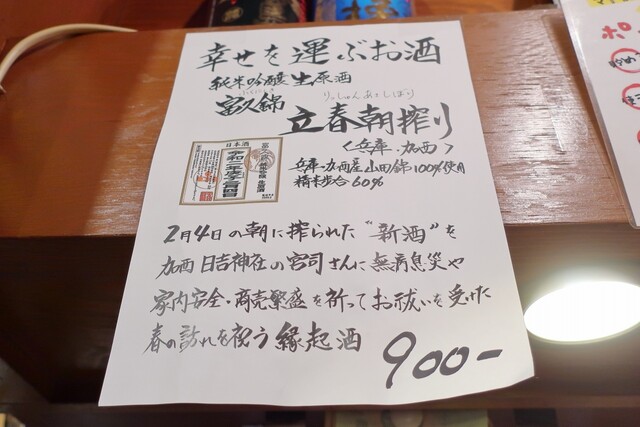 幸せを運ぶお酒
純米吟醸生原酒
ふくにしき りっしゅんあさしぼり
富久錦 立春朝搾り
<兵庫・加西>
兵庫・加西産山田錦100%使用
精米歩合60%
日本酒
2月4日の朝に搾られた"新酒"を
加西日吉神社の宮司さんに無病息災や
家内安全・商売繁盛を祈ってお祓いを受けた
春の訪れを祝う縁起酒
900-